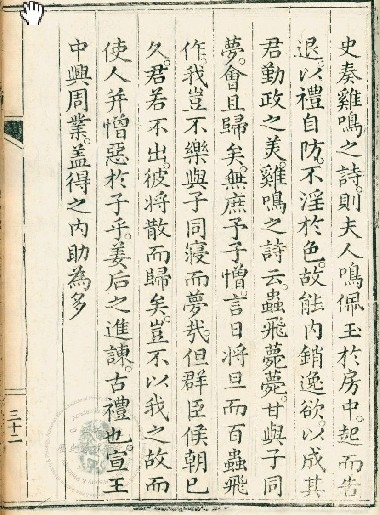 史奏雞鳴之詩。則夫人鳴佩玉於房中。起而告
退。以禮自防。不淫於色。故能內銷逸欲。以成其
君勤政之美。雞鳴之詩云。蟲飛薨薨。甘與子同
夢。會且歸矣。無庶予子憎。言日將旦而百蟲飛
作。我豈不樂與子同寢而夢哉。但群臣候朝已
久。君若不出。彼將散而歸矣。豈不以我之故而
使人并憎惡於子乎。姜后之進諫。古禮也。宣王
中興周業。蓋得之內助為多
三十二